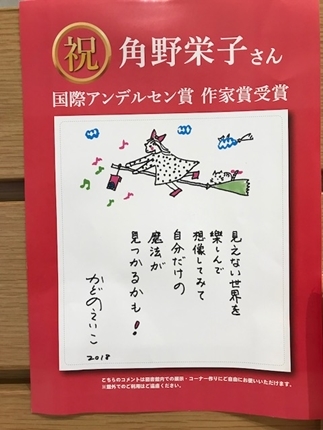 祝 角野栄子さん
国際アンデルセン賞 作家賞受賞
見えない世界を
楽しんで
想像してみて
自分だけの
魔法が
見つかるかも!
かどのえいこ
2018
こちらのコメントは図書館内での展示・コーナー作りにご自由にお使いいただけます。
※館外でのご利用はご遠慮ください。